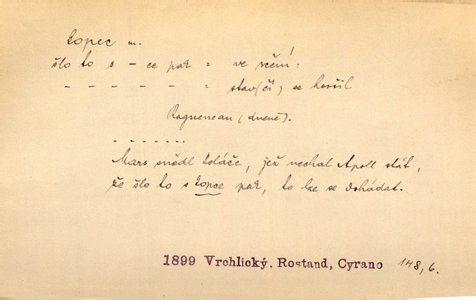 kopec m.
šlo to s – ce pak = ve rčení:
– – – – – = stav(čí) se horšil
Ragueneau (dueně).
. . . . . . .
Mars snědl koláče, jež nechal Apoll stát,
že šlo to s kopce pak, to lze se dohádat.
1899 Vrchlický. Rostand, Cyrano 148,6.